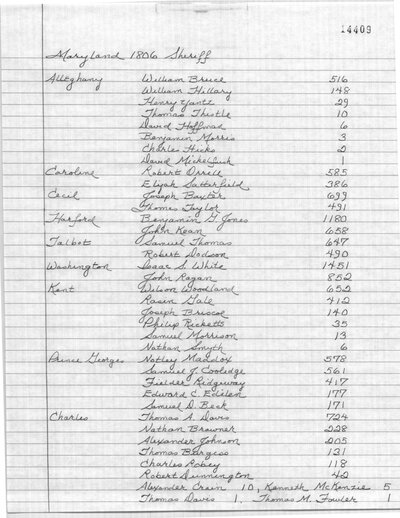 14409
Maryland 1806 Sheriff
Alleghany William Bruce 516
William Hillary 148
Henry Yantz 29
Thomas Thistle 10
David Hoffman 6
Benjamin Morris 3
Charles Hicks 2
David 1
Caroline Robert Orrell 585
Elijah Satterfield 386
Cecil Joseph Baxter 699
Thomas Taylor 491
Harford Benjamin G. Jones 1180
John Kean 658
Talbot Samuel Thomas 647
Robert Dodson 490
Washington Isaac S. White 1451
John Ragan 852
Kent Wilson Woodland 652
Rasin Gale 412
Joseph Briscoe 140
Philip Ricketts 35
Samuel Morrison 13
Nathan Smyth 6
Prince Georges Notley Maddox 578
Samuel J. Cooledge 561
Fielder Ridgeway 417
Edward C. Edilen 177
Samuel D. Beck 171
Charles Thomas A. Davis 724
Nathan Browner 228
Alexander Johnson 205
Thomas Burgess 121
Charles Robey 118
Robert Dunnington 42
Alexander Crain 10, Kenneth McKenzie 5
Thomas Davis 1, Thomas M. Fowler 1